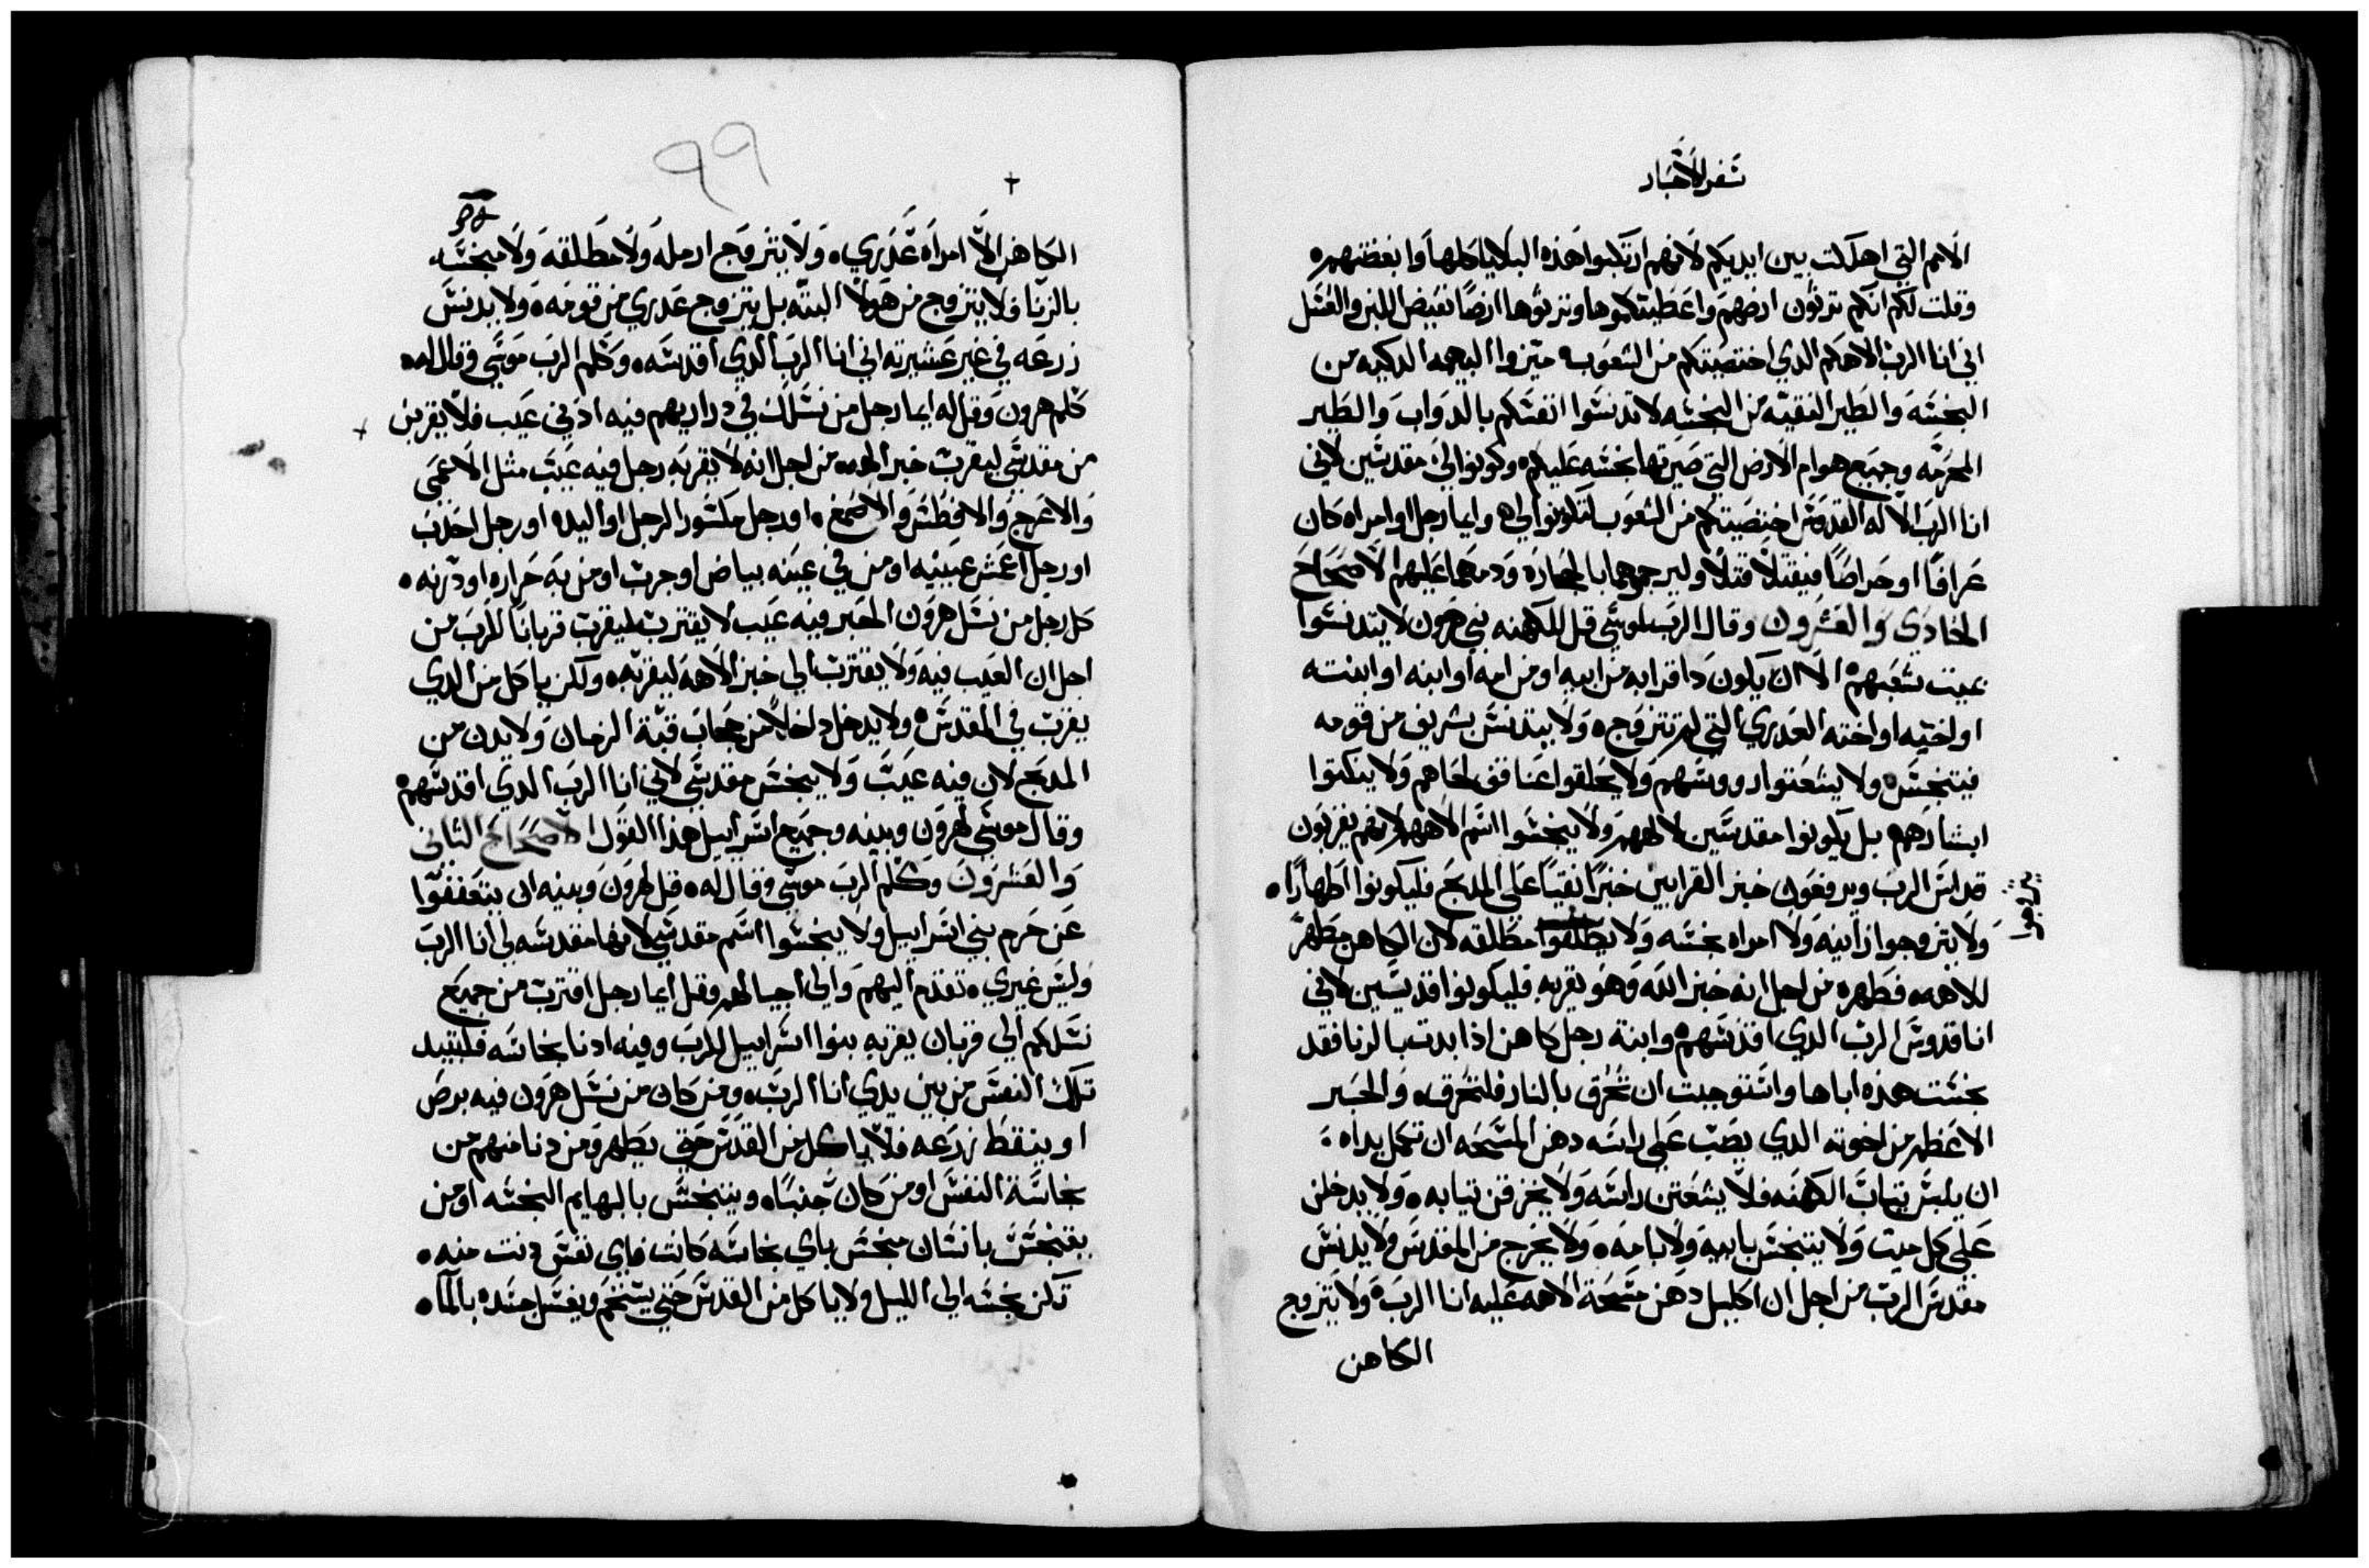 سفر الاحبار
الامم التي اهلكت بين ايديكم لانهم ارتكبوا هذه البلايا كلها وابغضتهم
وقلت لكم انكم ترثون ارضهم واعطيتكموها وترثوها ارضًا تفيض اللبن والعسل
اني انا الرب الاهكم الدي اختصيتكم من الشعوب ميزوا البهيمه الدكيه من
النجسه والطير النقيه من النجسه لا تدنسوا انفسكم بالدواب والطير
المحرمه وجميع هوام الارض التي صيرتها نجسه عليكم وكونوا لي مقدسين لاني
انا الرب الاله القدوس اختصيتكم من الشعوب لتكونوا لي وايما رجل او امراه كان
عرافًا او حراصًا فيقتلا قتلاً وليرجموهما بالحجاره ودمهما عليهم الاصحاح
الحادي والعشرون وقال الرب لموسي قل للكهنه بني هرون لا يتدنسوا
بميت شعبهم الا ان يكون دا قرابه من ابيه او من امه او ابنه او ابنته
او اخيه او اخته العدري التي لم تتزوج ولا يتدنس بشريف من قومه
فيتنجس ولا يشعتوا رووسهم ولا يحلقوا عنافق لحاهم ولا ينكتوا
ابشارهم بل يكونوا مقدسين لالههم ولا ينجسوا اسم الاههم لانهم يقربون
قداس الرب ويرفعون خبز القرابين خبزًا نقيًا علي المدبح فليكونوا اطهارًا
ولا يتزوجوا زانيه ولا امراه نجسه ولا يطلقوا مطلقه لان الكاهن مطهر
يتزاجوا
للاهه فطهره من اجل انه خبز الله وهو يقربه فليكونوا قديسين لاني
انا قدوس الرب الدي اقدسهم وابنة رجل كاهن اذا بدت بالزنا فقد
نجست هذه اباها واستوجبت ان تحرق بالنار فلتحرق والحبر
الاعظم من اخوته الدي يصب علي راسه دهن المسحه ان تكمل يداه
ان يلبس ثياب الكهنه فلا يشعتن راسه ولا يخرقن ثيابه ولا يدخلن
علي كل ميت ولا يتنجس بابيه ولا بامه ولا يخرج من المقدس ولا يدنس
مقدس الرب من اجل ان اكليل دهن مسحة الاهه عليه انا الرب ولا يتزوج
الكاهن
٩٩
الكاهن الا امراه عدري ولا يتزوج ارمله ولا مطلقه ولا منجسه
بالزنا فلا يتزوج من هولا البته بل يتزوج عدري من قومه ولا يدنس
زرعه في غير عشيرته اني انا الرب الدي اقدسه وكلم الرب موسي وقال له
كلم هرون وقل له ايما رجل من نسلك في دراريهم فيه ادني عيب فلا يقربن
من مقدسي ليقرب خبز الهه من اجل انه لا يقربه رجل فيه عيب مثل الاعمي
والاعرج والافطس والاصمغ او رجل مكسور الرجل او اليد او رجل احدب
او رجل اعمش عينيه او من في عينه بياض او جرب او من به حراره او درنه
كل رجل من نسل هرون الحبر فيه عيب لا يقترب ليقرب قربانًا للرب من
اجل ان العيب فيه ولا يقترب الي خبز الاهه ليقربه ولكن ياكل من الدي
يقرب في المقدس ولا يدخل داخلاً من حجاب قبة الزمان ولا يدن من
المدبح لان فيه عيب ولا ينجس مقدسي لاني انا الرب الدي اقدسهم
وقال موسي لهرون وبنيه وجميع اسراييل هذا القول الاصحاح الثاني
والعشرون وكلم الرب موسي وقال له قل لهرون وبنيه ان يتعففوا
عن حرم بني اسراييل ولا ينجسوا اسم مقدسي لانها مقدسه لي انا الرب
وليس غيري تقدم اليهم والي اجيالهم وقل ايما رجل اقترب من جميع
نسلكم الي قربان يقربه بنوا اسراييل للرب وفيه ادنا نجاسه فلتبيد
تلك النفس من بين يدي انا الرب ومن كان من نسل هرون فيه برص
او ينقط زرعه فلا ياكل من القدس حتي يطهر ومن دنا منهم من
نجاسة النفس او من كان جنبًا ويتنجس بالبهايم النجسه او من
يتنجس بانسان منجس باي نجاسه كانت فاي نفس دنت منه
تكن نجسه الي الليل ولا ياكل من القدس حتي يستحم ويغسل جسده بالما